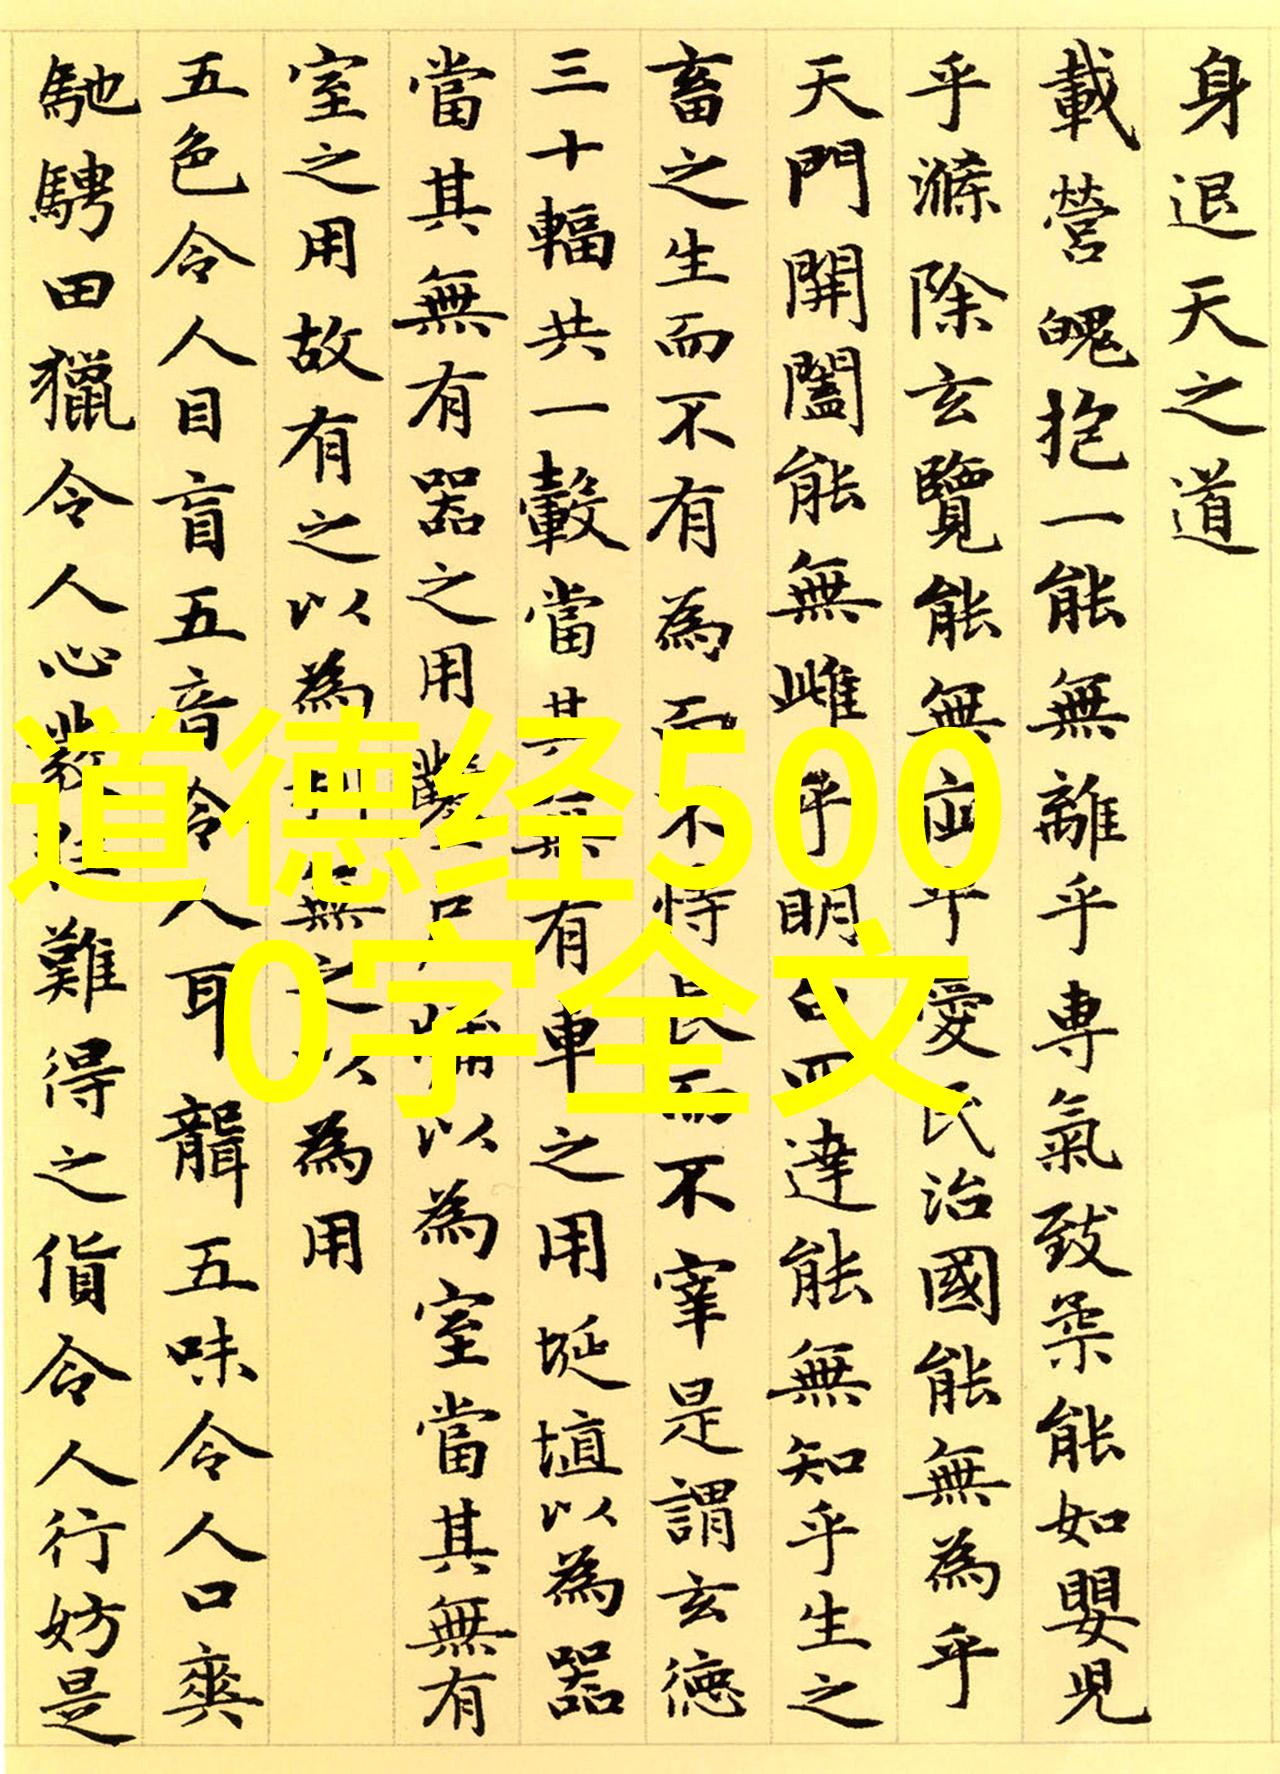 身退天之道
載營魄抱一能無離乎専氣致柔能如嬰兒
乎滌除玄覽能無疵乎愛民治國能無為乎
天門開闔能無雌乎明白四達能無知乎生之
畜之生而不有為而不恃長而不宰是謂玄德
三十輻共一轂當其無有車之用埏埴以為器
當其無有器之用鑿戶牖以為室當其無有
室之用故有之以為利無之以為用
五色令人目盲五音令人耳聾五味令人口爽
馳騁田獵令人心發狂難得之貨令人行妨是
道德经500
0字全文